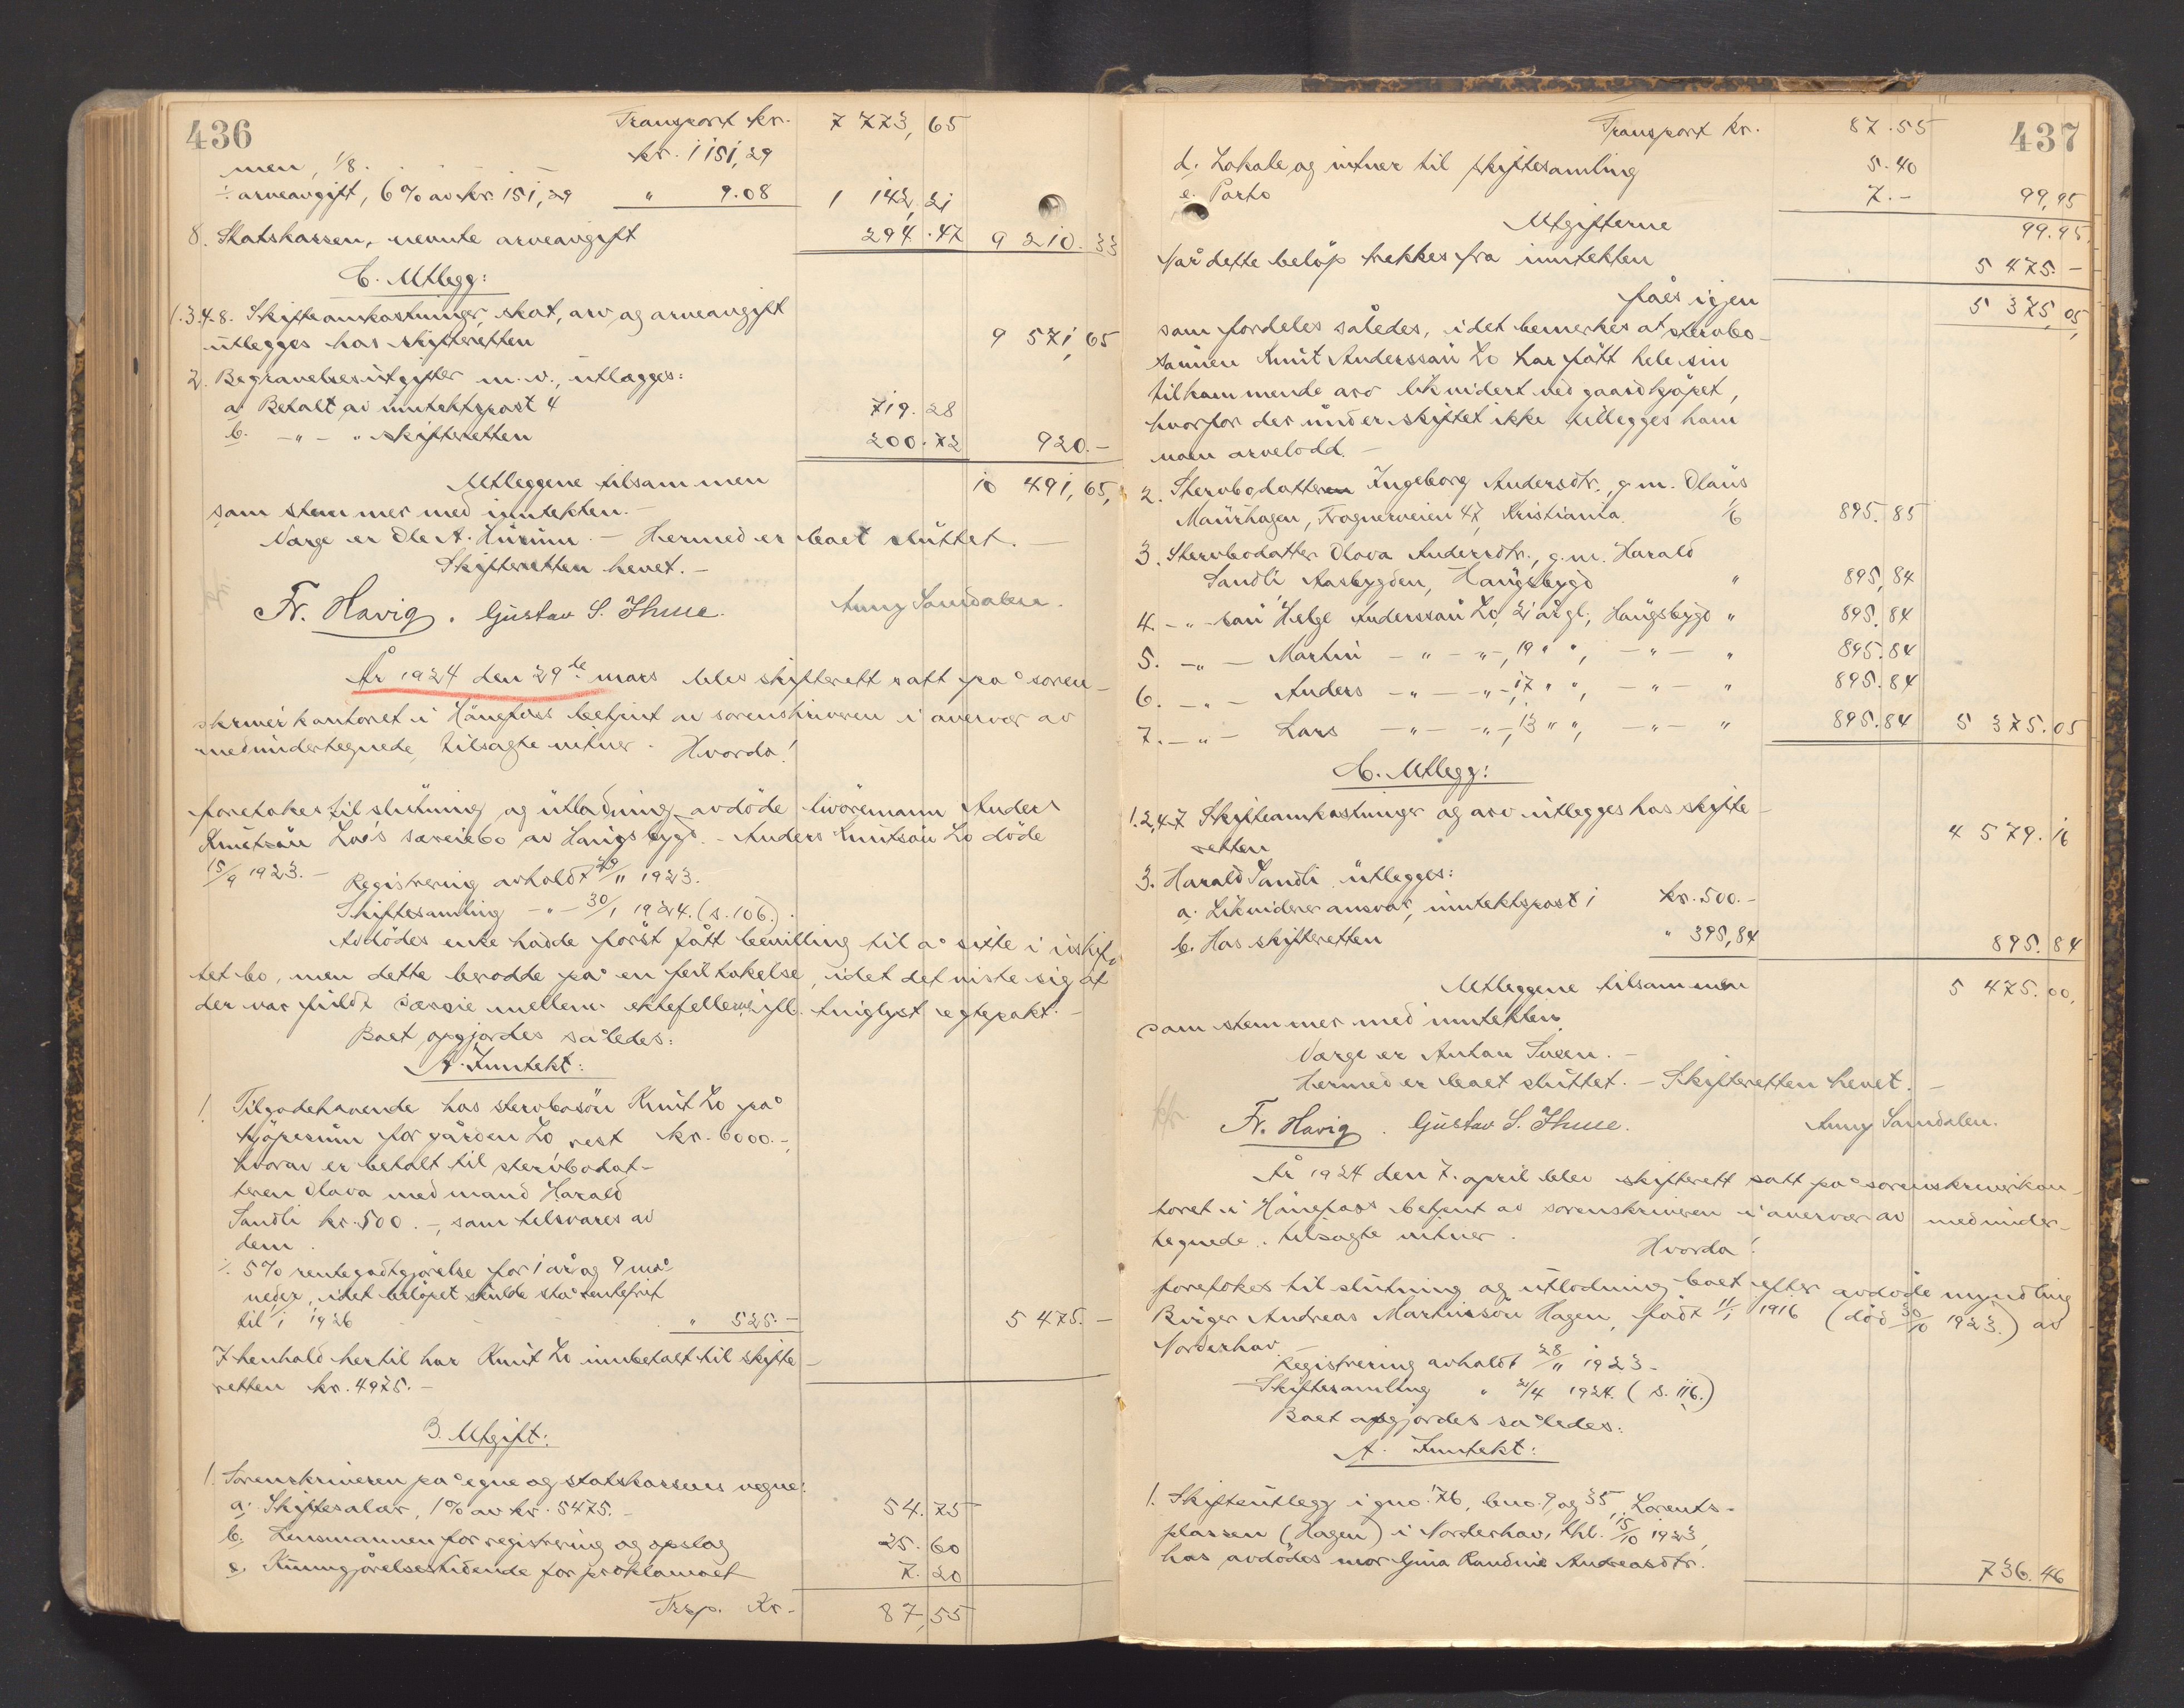 436
Transport kr. 7 773,65
men, 1/8. kr. 1 151,29
÷ arveavgift, 6 % av kr. 151,29 " 9.08 1 142,21
8. Statskassen, nevnte arveavgift 294.47 9 210.33
C. Utlegg:
1.3.4.8. Skifteomkostninger, skat, arv og arveavgift
utlegges hos skifteretten 9 571,65
2. Begravelsesutgifter m.v., utlægges:
a. Betalt av inntektspost 4 719.28
b. -"- " skifteretten 200.72 920.-
Utleggene tilsammen 10 491,65,
som stemmer med inntekten.-
Verge er Ole A. Hurum. - Hermed er boet sluttet.-
Skifteretten hevet.-
Fr. Havig. Gustav S. Thue. Anny Samdalen.
År 1924 den 29de mars blev skifterett satt på soren-
skriverkontoret i Hönefoss betjent av sorenskriveren i överver av
medundertegnede, tilsagte vitner. Hvorda!
foretokes til slutning og utlodning avdöde livöremann Anders
Knutsön Lo's særeiebo av Haugsbygd. - Anders Knutsön Lo döde
15/9 1923. - Registrering avholdt 29/" 1923.
Skiftesamling -"- 30/1 1924. (s. 106.).
Avdödes enke hadde först fått bevilling til å sitte i uskif-
tet bo, men dette berodde på en feiltakelse, idet det viste sig at
der var fuldt særeie mellem ektefellene ifl. tinglyst egtepakt.-
Boet opgjordes således:
A. Inntekt:
1. Tilgodehavende hos stervbosön Knut Lo på
kjöpesum for gården Lo, rest kr. 6000.-,
hvorav er betalt til stervbodat-
teren Olava med mand Harald
Sandli kr. 500.-, som tilsvares av
dem.
÷ 5% rentegodtgjörelse for 1 år og 9 må-
neder, idet belöpet skulde stå rentefrit
til 1/1 1926 " 525.- 5 475.-
I henhold hertil har Knut Lo innbetalt til skifte-
retten kr. 4975.-
B. Utgift:
1. Sorenskriveren på egne og statskassens vegne:
a. Skiftesalær, 1% av kr. 5475.- 54.75
b. Lensmannen for registrering og opslag 25.60
c. Kunngjörelsestidende for proklamaet 7.20
Trsp. Kr. 87,55
437
Transport kr. 87.55
d. Lokale og vitner til skiftesamling 5.40
e. Porto 7.- 99,95
Utgifterne 99.95,
Når dette belöp trekkes fra inntekten 5 475.-
fåes igjen 5 375,05,
som fordeles således, idet bemerkes at stervbo-
sönnen Knut Anderssön Lo har fått hele sin
tilkommende arv likvidert ved gaardkjöpet,
hvorfor der under skiftet ikke tillegges ham
noen arvelodd.-
2. Stervbodatteren Ingeborg Andersdtr., g.m. Olaus
Maurhagen, Frognerveien 47, Kristiania 1/6 895.85
3. Stervbodatter Olava Andersdtr., g.m. Harald
Sandli Aasbygden, Haugsbygd " 895,84
4. -"- sön Helge Anderssön Lo, 21 år gl., Haugsbygd " 895.84
5. -"- Martin -"- -"-, 19 " ", -"- " 895.84
6. -"- Anders -"- -"-, 17 " ", -"- " 895.84
7. -"- Lars -"- -"-, 13 " ", -"- " 895.84 5 375.05
C. Utlegg:
1.2,4-7 Skifteomkostninger og arv utlegges hos skifte-
retten 4 579.16
3. Harald Sandli utlegges:
a. Likviderer ansvar, inntektspost 1 kr. 500.-
b. Hos skifteretten " 395,84 895.84
Utleggene tilsammen 5 475.00,
som stemmer med inntekten.
Verge er Anton Sveen.-
Hermed er boet sluttet. - Skifteretten hevet.-
Fr. Havig. Gustav S. Thue. Anny Samdalen.
År 1924 den 7. april blev skifterett satt på sorenskriverkon-
toret i Hönefoss betjent av sorenskriveren i överver av medunder-
tegnede, tilsagte vitner. Hvorda!
foretokes til slutning og utlodning boet efter avdöde myndling
Birger Andreas Martinsön Hagen, född 11/1 1916 (död 30/10 1923.) av
Norderhov.-
Registrering avholdt 28/" 1923.
Skiftesamling " 2/4 1924. (s. 116.)
Boet opgjordes således:
A. Inntekt:
1. Skifteutlegg i gno. 76, bno. 9 og 35, Lorents-
plassen (Hagen) i Norderhov, thl. 15/10 1923,
hos avdödes mor Gina Randine Andreasdtr. 736.46